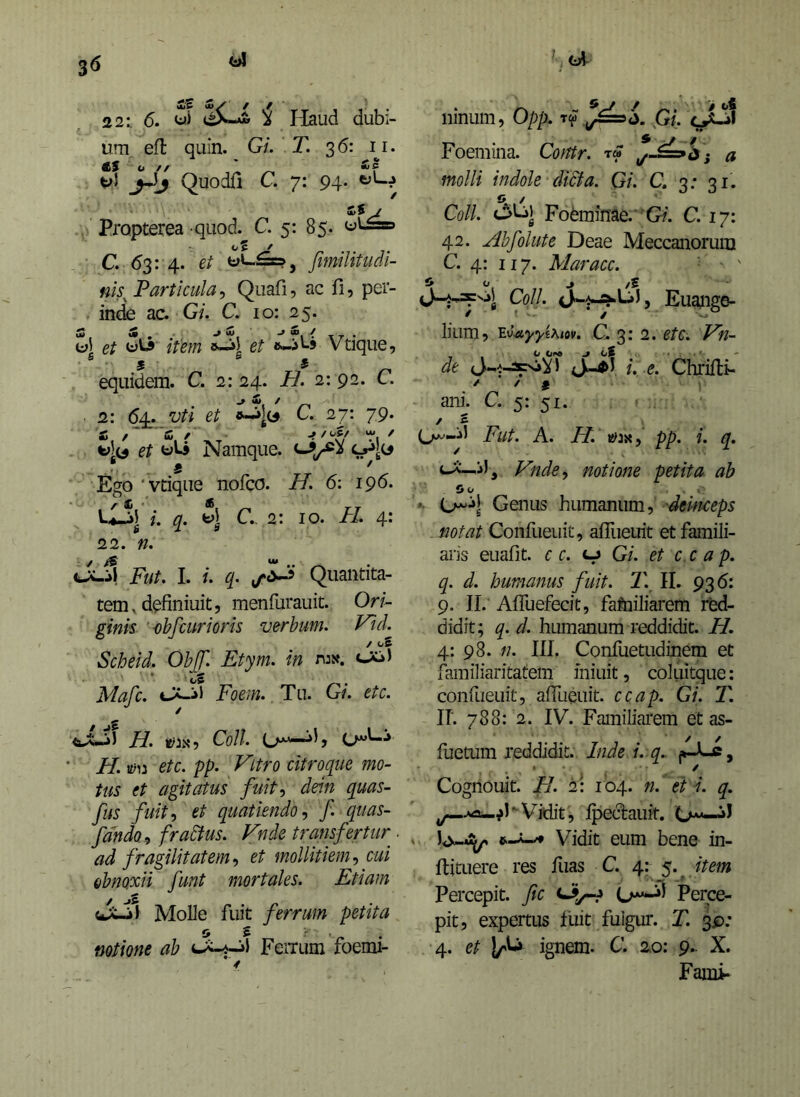 36
ان
22: 6. لا شَكَّ أَنَّ Haud dubi-
um est quin. Gi. T. 36: 11.
Quodsi C. 7: 94. بِأَنَّ
Propterea quod. C. 5: 85. كَأَنَّ
C. 63: 4. et كَأَنْ, similitudi-
nis Particula, Quasi, ac si, per-
inde ac. Gi. C. 10: 25.
إِنَّ et فَإِنَّ item إِنَّهُ et فَإِنَّهُ Vtique,
equidem. C. 2: 24. H. 2: 92. C.
2: 64. vti et وَإِنَّهُ C. 27: 79.
وَإِنَّ et فَإِنَّ Namque. وَإِنِّي لَأَعْرِفُ
Ego vtique nosco. H. 6: 196.
إِنَّمَا i. q. إِنَّ C. 2: 10. H. 4:
22. n.
Fut. I. i. q. Quantita-
tem, definiuit, mensurauit. Ori-
ginis obscurioris verbum. Vid.
Scheid. Obss. Etym. in
Masc. Foem. Tu. Gi. etc.
H. אנש, Coll.
H. etc. pp. Vltro citroque mo-
tus et agitatus fuit, dein quas-
sus fuit, et quatiendo, s. quas-
sando, fractus. Vnde transfertur
ad fragilitatem, et mollitiem, cui
obnoxii sunt mortales. Etiam
أَنُثَ Molle fuit ferrum petita
notione ab أَنِيثٌ Ferrum foemi-
ان
ninum, Opp. τῷ ذَكَرٌ. Gi. أُنْثَى
Foemina. Contr. τῷ ذَكَرٌ; a
molli indole dicta. Gi. C. 3: 31.
Coll. إِنَاثٌ Foeminae. Gi. C. 17:
42. Absolute Deae Meccanorum
C. 4: 117. Maracc.
إِنْجِيلٌ Coll. أَنَاجِيلُ, Euange-
lium, Εὐαγγέλιον. C. 3: 2. etc. Vn-
de أَهْلُ الإِنْجِيلِ i. e. Christi-
ani. C. 5: 51.
أَنَسَ Fut. A. H. אנש, pp. i. q.
أَنُثَ, Vnde, notione petita ab
إِنْسٌ Genus humanum, deinceps
notat Consueuit, assueuit et famili-
aris euasit. c c. ب Gi. et c c a p.
q. d. humanus fuit. T. II. 936:
9. II. Assuefecit, familiarem red-
didit; q. d. humanum reddidit. H.
4: 98. n. III. Consuetudinem et
familiaritatem iniuit, coluitque:
consueuit, assueuit. c c a p. Gi. T.
II. 788: 2. IV. Familiarem et as-
suetum reddidit. Inde i. q. عَلِمَ,
Cognouit. H. 2: 104. n. et i. q.
Vidit, spectauit.
Vidit eum bene in-
stituere res suas C. 4: 5. item
Percepit. sic Perce-
pit, expertus fuit fulgur. T. 30:
4. et نَارًا ignem. C. 20: 9. X.
Fami-